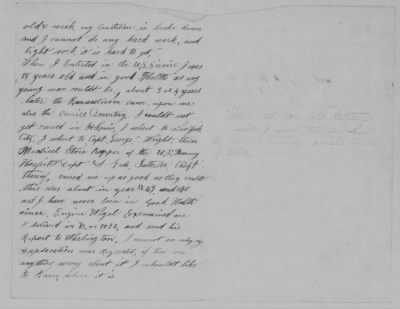 old & weak my constitution is broke down
and I cannot do any hard work, and
light work it is hard to get,"
When I Enlisted in the U.S. Service I was
18 years old and in good Health as any
young man could be, about 3 or 4 years
later the Rheumatism came upon me
also the Cronic Disentry I couldn't
get cured in I went to New York
City, I went to Capt. George Wright, then
Medical Store Keeper of the U.S. Army
Hospital Dept & Edw. Sutter Chief
Clerk, cured me up as good as they could
this was about in year 1869 and 1870
and I have never been in Good Health
since, Eugine Examined me
I believe in or 1890, and send his
Report to Washington, I cannot see why my
application was rejected, if there was
anything wrong about it I would like
to Know where it is